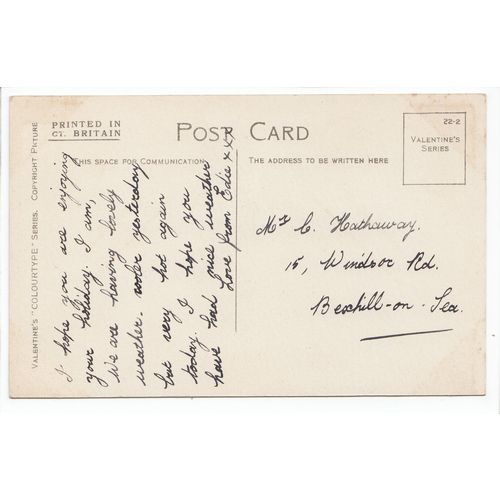 PRINTED IN
GT. BRITAIN
POST CARD
22-2
VALENTINE'S
SERIES
THIS SPACE FOR COMMUNICATION
THE ADDRESS TO BE WRITTEN HERE
VALENTINE'S "COLOURTYPE" SERIES. COPYRIGHT PICTURE
I hope you are enjoying
your holiday. I am,
We are having lovely
weather. cooler yesterday
but very hot again
today. I hope you
have had nice weather
Love from Edie xxx
Mr C. Hathaway.
15, Windsor Rd.
Bexhill-on-Sea.